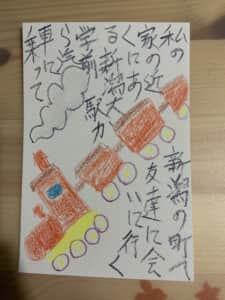 私の
家の近
くにあ
る新潟大
学前駅か
ら汽
車に
乗って
新潟の町へ
友達に会
いに行く